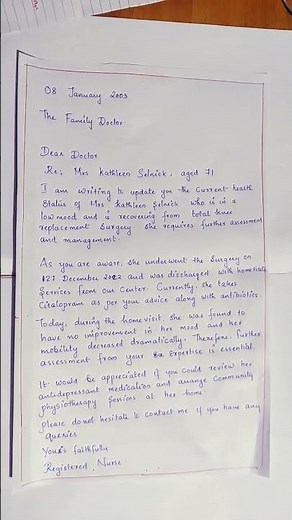 08 January 2003
The Family Doctor
Dear Doctor
Re: Mrs Kathleen Selnick, aged 71
I am writing to update you the current health
status of Mrs Kathleen Selnick who is in a
low mood and is recovering from total knee
replacement surgery. she requires further assessment
and management.
As you are aware, she underwent the surgery on
27 December 2002 and was discharged with home visits
services from our center. Currently, she takes
Citalopram as per your advice along with antibiotics.
Today, during the home visit, she was found to
have no improvement in her mood and her
mobility decreased dramatically. Therefore, further
assessment from your expertise is essential.
It would be appreciated if you could review her
antidepressant medication and arrange community
physiotherapy sessions at her home.
please do not hesitate to contact me if you have any
queries
Yours faithfully
Registered Nurse